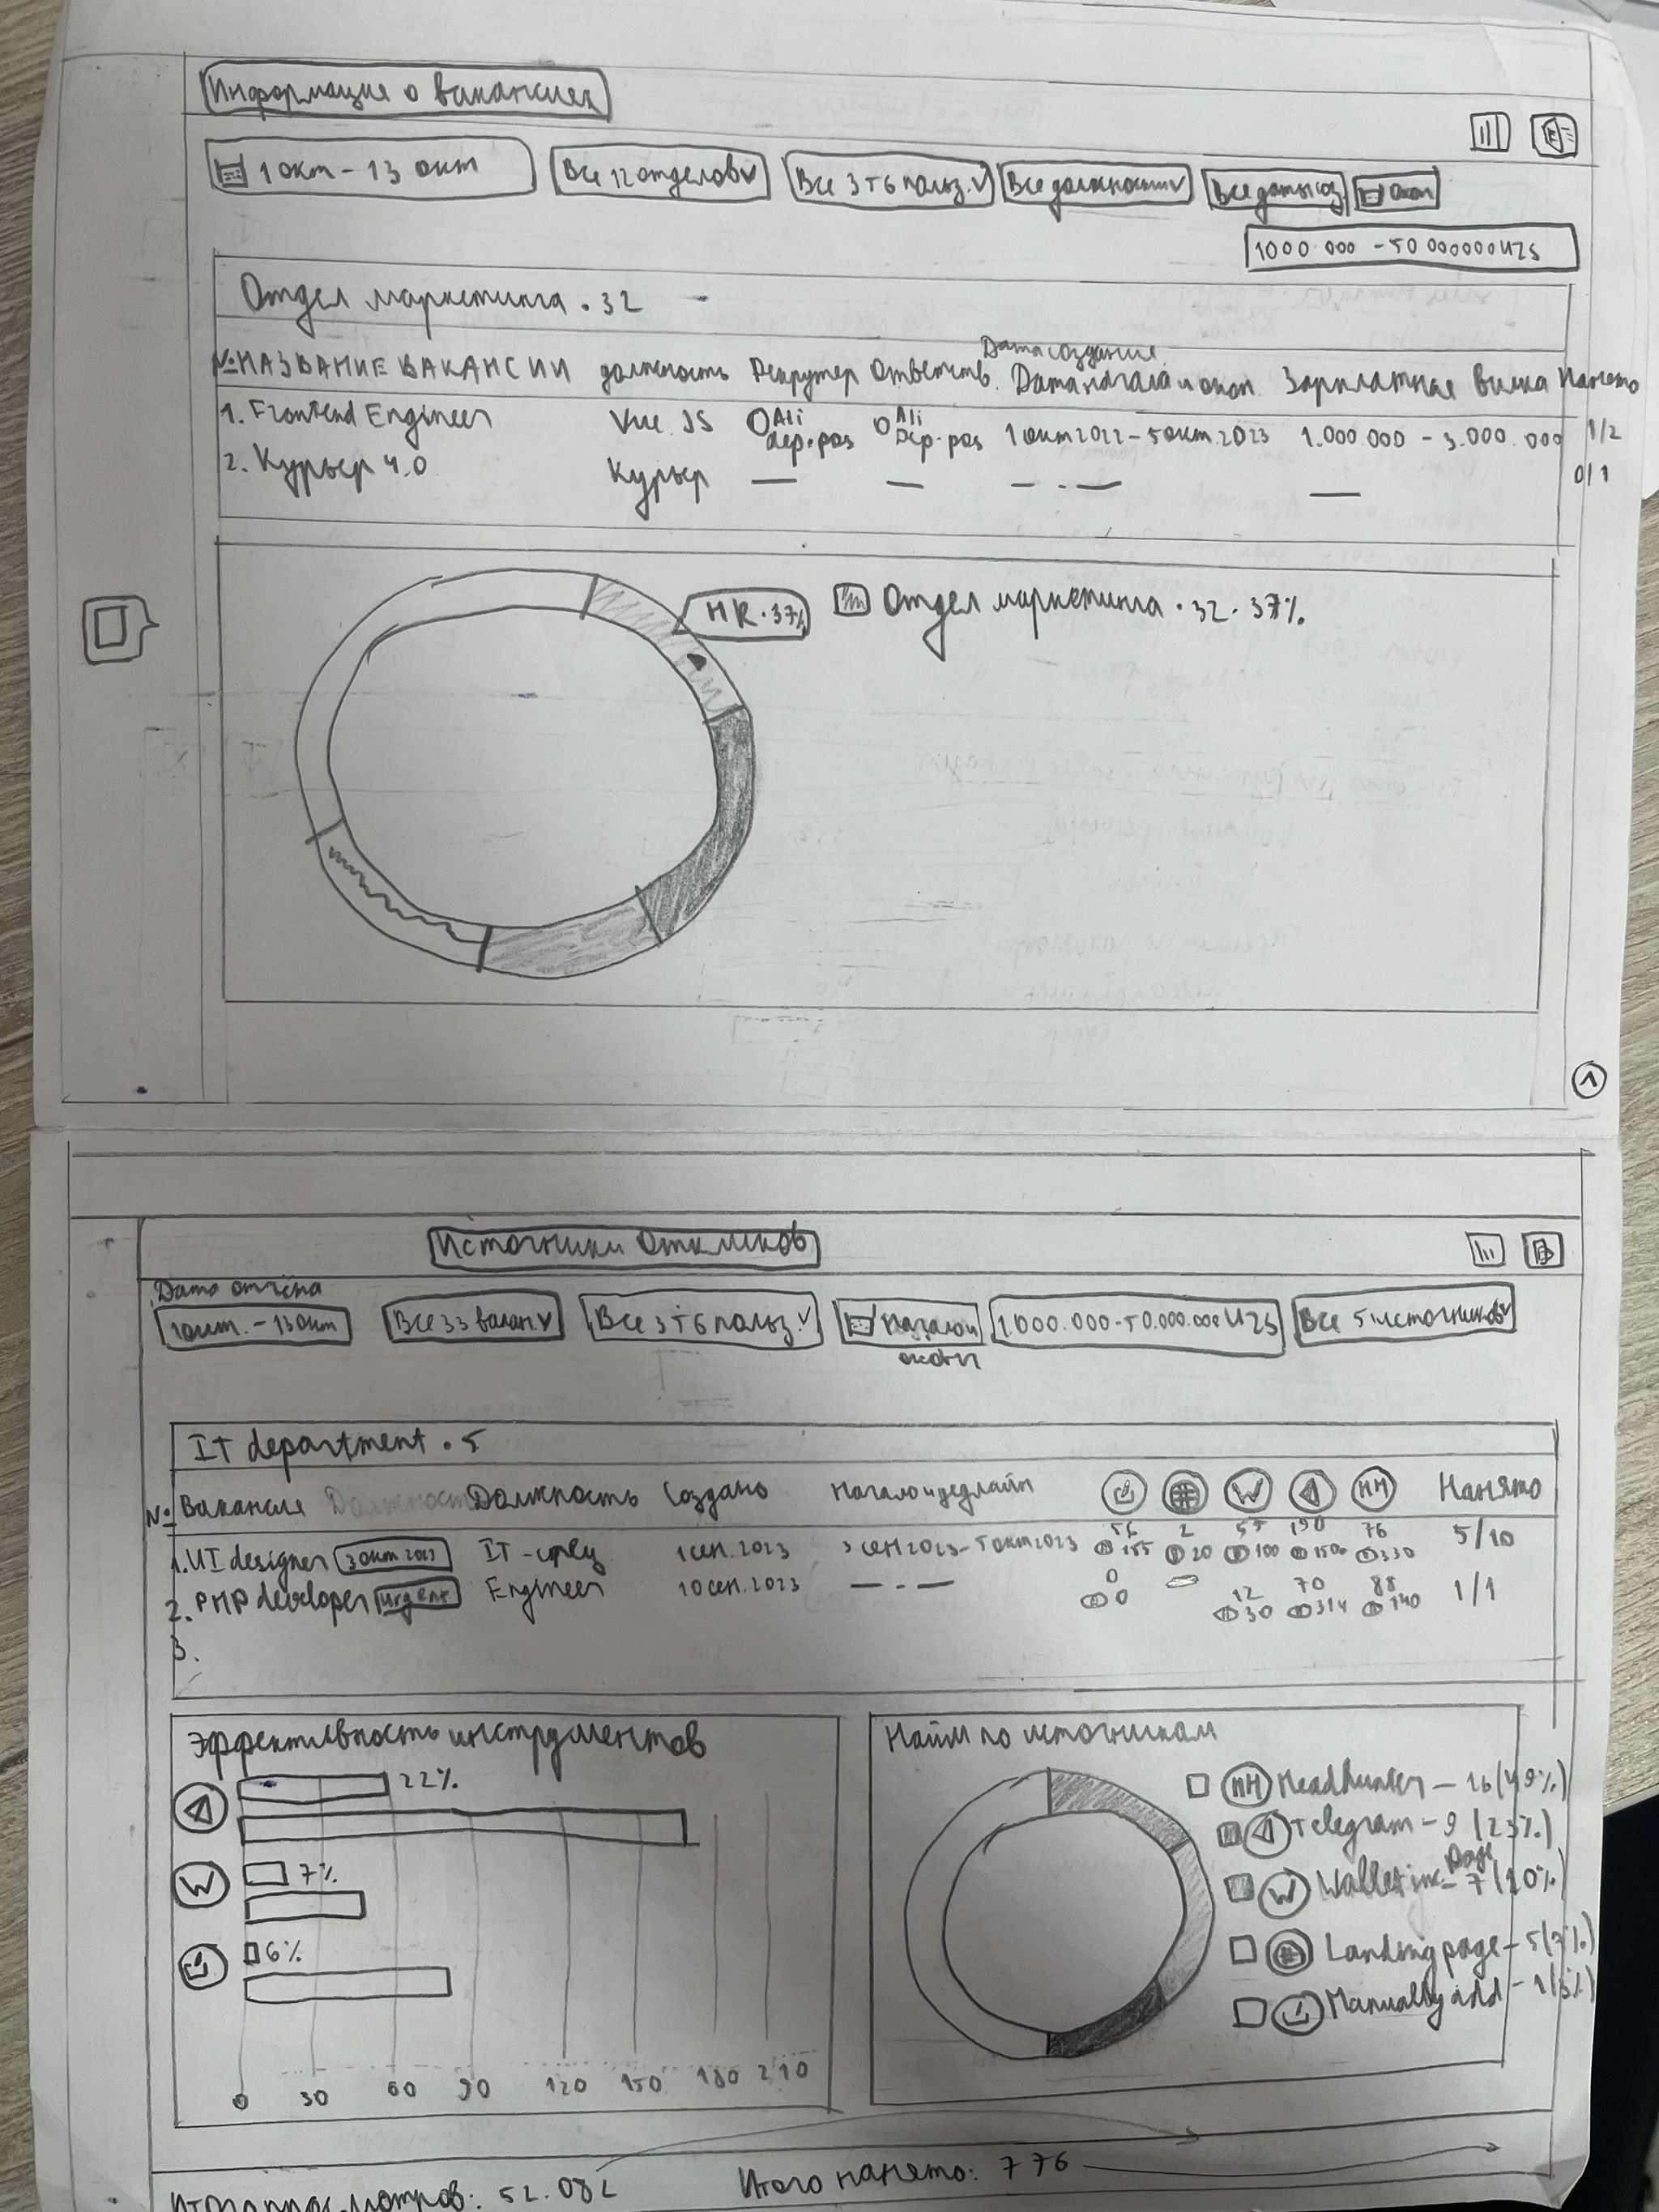 Информация о вакансиях
1 окт - 13 окт
Все 12 отделов
Все 3 т 6 польз.
Все должности
Все даты соз
Окон
1000 000 - 50 000000 UZS
Отдел маркетинга . 32
№ НАЗВАНИЕ ВАКАНСИИ должность Рекрутер Ответств. Дата создания Дата начала и окон. Зарплатная вилка Нанято
1. Frontend Engineer Vue JS Ali dep.pos Ali Dep.pos 1 окт 2022 - 5 окт. 2023 1.000.000 - 3.000.000 1/2
2. Курьер 4.0 Курьер — — — . — — 0/1
HR . 37%
Отдел маркетинга . 32 . 37%
Источники Откликов
Дата отчёта
1 окт. - 13 окт
Все 33 вакан.
Все 3 т 6 польз.
1.000.000 - 50.000.000 UZS
Все 5 источников
IT department . 5
№ Вакансия Должность Создано Начало и дедлайн W HH Нанято
1. UI designer 3 окт. 2023 IT-спец 1 сен. 2023 3 сен 2023 - 5 окт 2023 2 190 76 5/10
20 100 330
2. PHP developer urgent Engineer 10 сен. 2023 — . — 0 12 70 88 1/1
0 30 314 140
3.
Эффективность инструментов
22%
W 7%
6%
0 30 60 90 120 150 180 210
Найм по источникам
HH Headhunter — 16 (49%)
Telegram - 9 (23%)
W Wallet inc. Page - 7 (20%)
Landing page - 5 (7%)
Manually add - 1 (3%)
Итого просмотров: 52.082
Итого нанято: 776